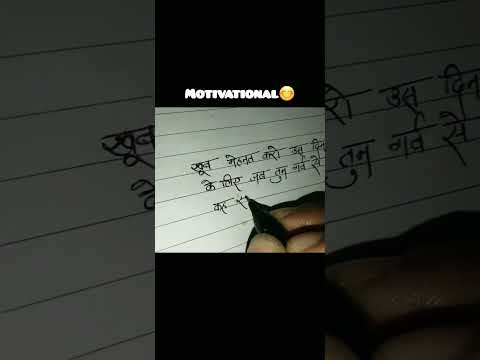 Motivational😊
खूब मेहनत करो उस दिन
के लिए जब तुम गर्व से
कह